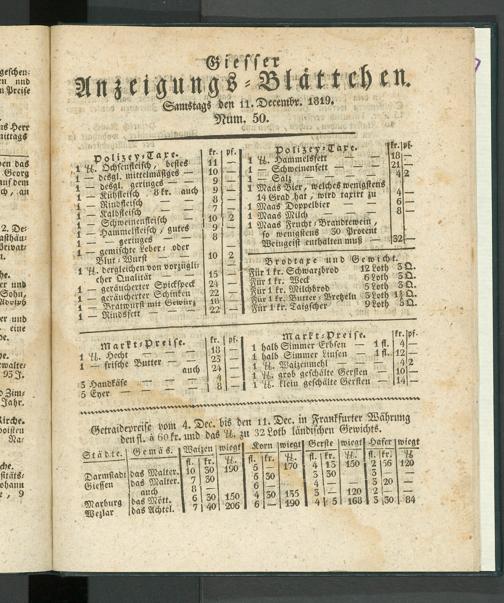 Giesser
Anzeigungs-Blättchen.
Samstags den 11. Decembr. 1819.
Num. 50.
Polizey-Taxe. kr. pf.
1 ℔. Ochsenfleisch, bestes 11 —
1 — desgl. mittelmäßiges — 10 —
1 — desgl. geringes — 9 —
1 — Kühfleisch, 8 kr. auch 9 —
1 — Rindfleisch — — 8 —
1 — Kalbfleisch — — 7 —
1 — Schweinenfleisch — 10 2
1 — Hammelfleisch, gutes 9 —
1 — geringes — 8 —
1 — gemischte Leber- oder
Blut-Wurst — — 10 2
1 ℔. dergleichen von vorzügli-
cher Qualität — 15 —
1 — geräucherter Spickspeck 24 —
1 — geräucherter Schinken 22 —
1 — Bratwurst mit Gewürz 16 —
1 — Rindsfett — — 15 —
Polizey-Taxe. kr. pf.
1 ℔. Hammelsfett — 18 —
1 — Schweinensett — 21 —
1 — Salz — — 4 2
1 Maas Bier, welches wenigstens
14 Grad hat, wird taxirt zu 4 —
1 Maas Doppelbier — 6 —
1 Maas Milch — 8 —
1 Maas Frucht-Brandtewein,
so wenigstens 30 Procent
Weingeist enthalten muß 32 —
Brodtaxe und Gewicht.
Für 1 kr. Schwarzbrod 12 Loth 3 Q.
Für 1 kr. Weck 6 Loth
Für 1 kr. Milchbrod 5 Loth
Für 1 kr. Butter-Bretzeln 3 Loth
Für 1 kr. Taigscher 9 Loth
Markt-Preise. kr. pf.
1 ℔. Hecht — — 18 —
1 — frische Butter — 23 —
auch 24 —
5 Handkäse — — 4 —
5 Eyer — — 8 —
Markt-Preise. kr. pf.
1 halb Simmer Erbsen — 1 fl. 4 —
1 halb Simmer Linsen 1 fl. 12 —
1 ℔. Waizenmehl — 4 2
1 ℔. grob geschälte Gersten — 10 —
1 ℔. klein geschälte Gersten — 14 —
Getraidepreise vom 4. Dec. bis den 11. Dec. in Frankfurter Währung
den fl. à 60 kr. und das ℔. zu 32 Loth ländischen Gewichts.
Städte. Gemäs. Waizen wiegt Korn wiegt Gerste wiegt Hafer wiegt
fl. kr. ℔. fl. kr. ℔. fl. kr. ℔. fl. kr. ℔.
Darmstadt das Malter. 10 30 190 5 — 170 4 13 150 2 56 120
Giessen das Malter. 7 30 5 30 3 30 3 —
auch 8 — 6 — 4 — 3 20 —
Marburg das Mött. 6 30 150 4 30 155 3 — 120 2 —
Wezlar das Achtel. 7 40 206 6 — 190 4 168 3 30 84